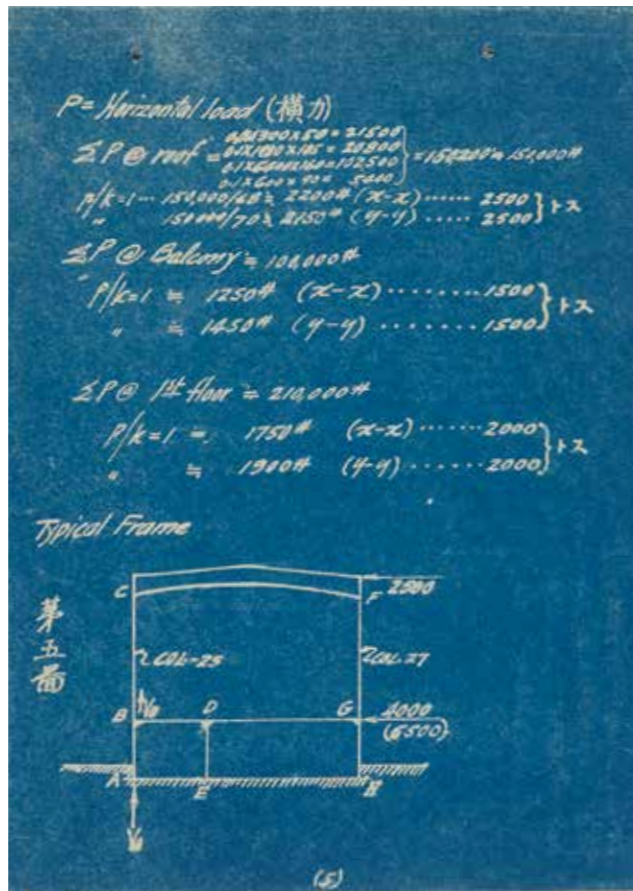 P = Horizontal load (横力)
ΣP @ roof =
= 21500
= 20800
= 102500
0.1×600×90 = 5400
p/k=1 ··· 150,000/68 ≒ 2200# (x-x) ····· 2500
〃 150000/70 ≒ 2150# (y-y) ····· 2500 } トス
ΣP @ Balcony ≒ 100,000#
P/k=1 ≒ 1250# (x-x) ········ 1500
〃 ≒ 1450# (y-y) ······· 1500 } トス
ΣP @ 1st floor ≒ 210,000#
P/k=1 ≒ 1750# (x-x) ······ 2000
〃 ≒ 1900# (y-y) ······ 2000 } トス
Typical Frame
第五
C
F
2500
COL-25
COL-27
B
D
G
4000
(6500)
A
E
H
(5)